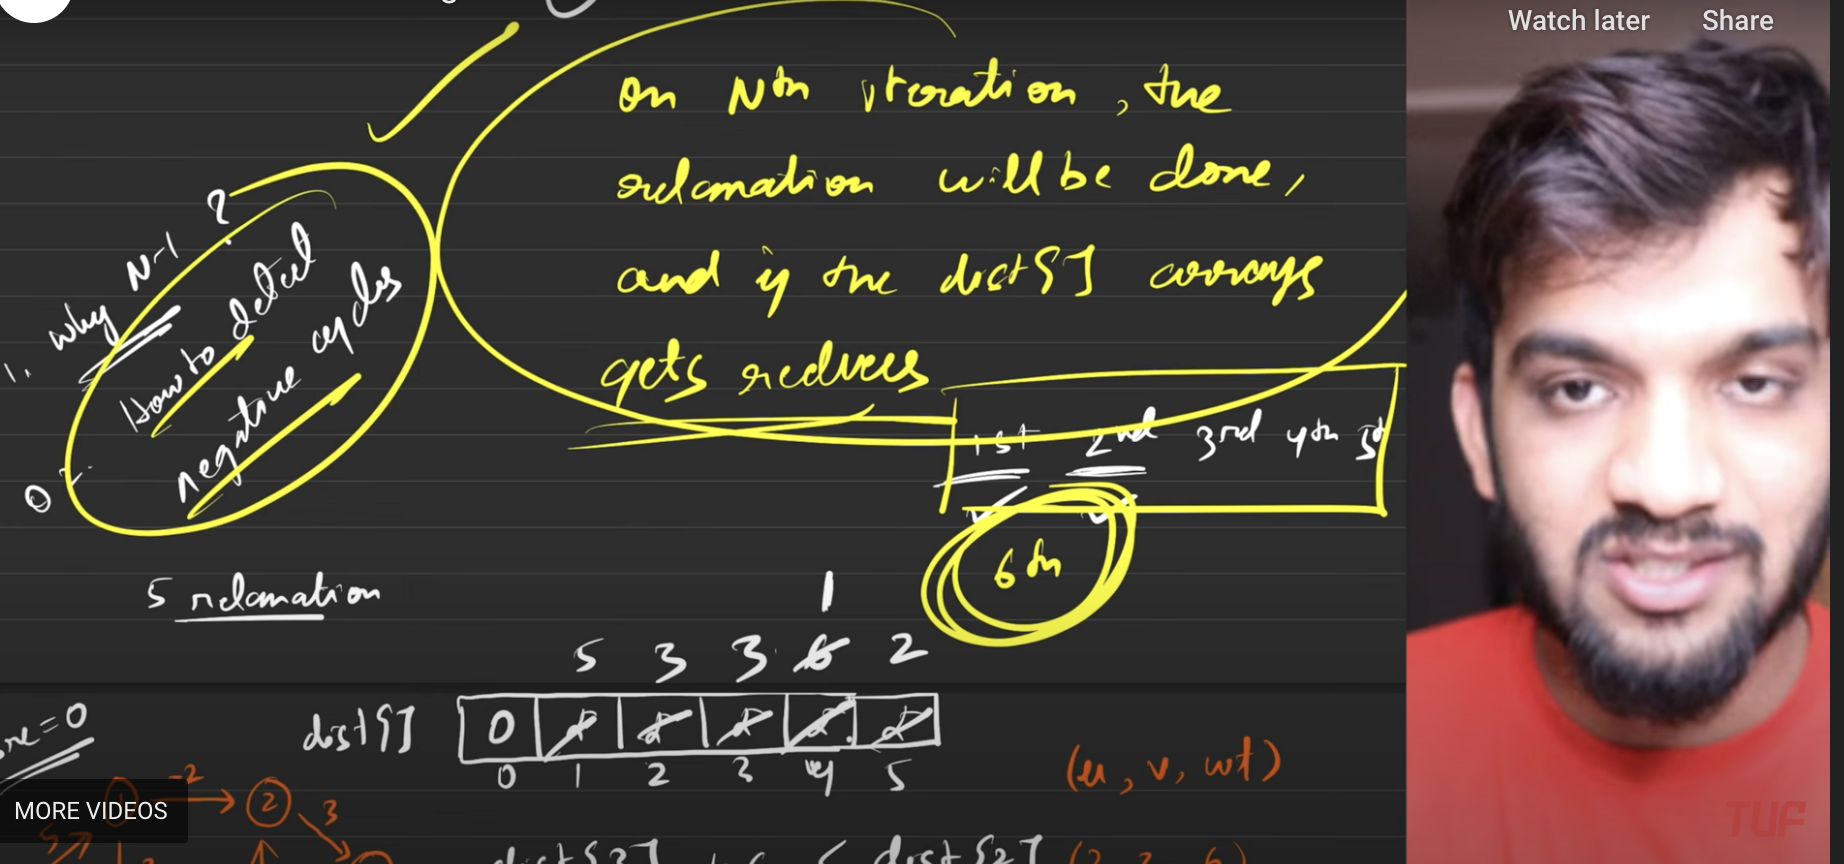 Watch later Share
on Nth iteration, the
relaxation will be done,
and if the dist[] arrays
gets reduces
1. Why N-1 ?
How to detect
negative cycles
1st 2nd 3rd 4th 5th
6th
5 relaxation
1
5 3 3 6 2
dist[] 0
0 1 2 3 4 5
(u, v, wt)
src=0
-2
2 3
5
MORE VIDEOS
TUF